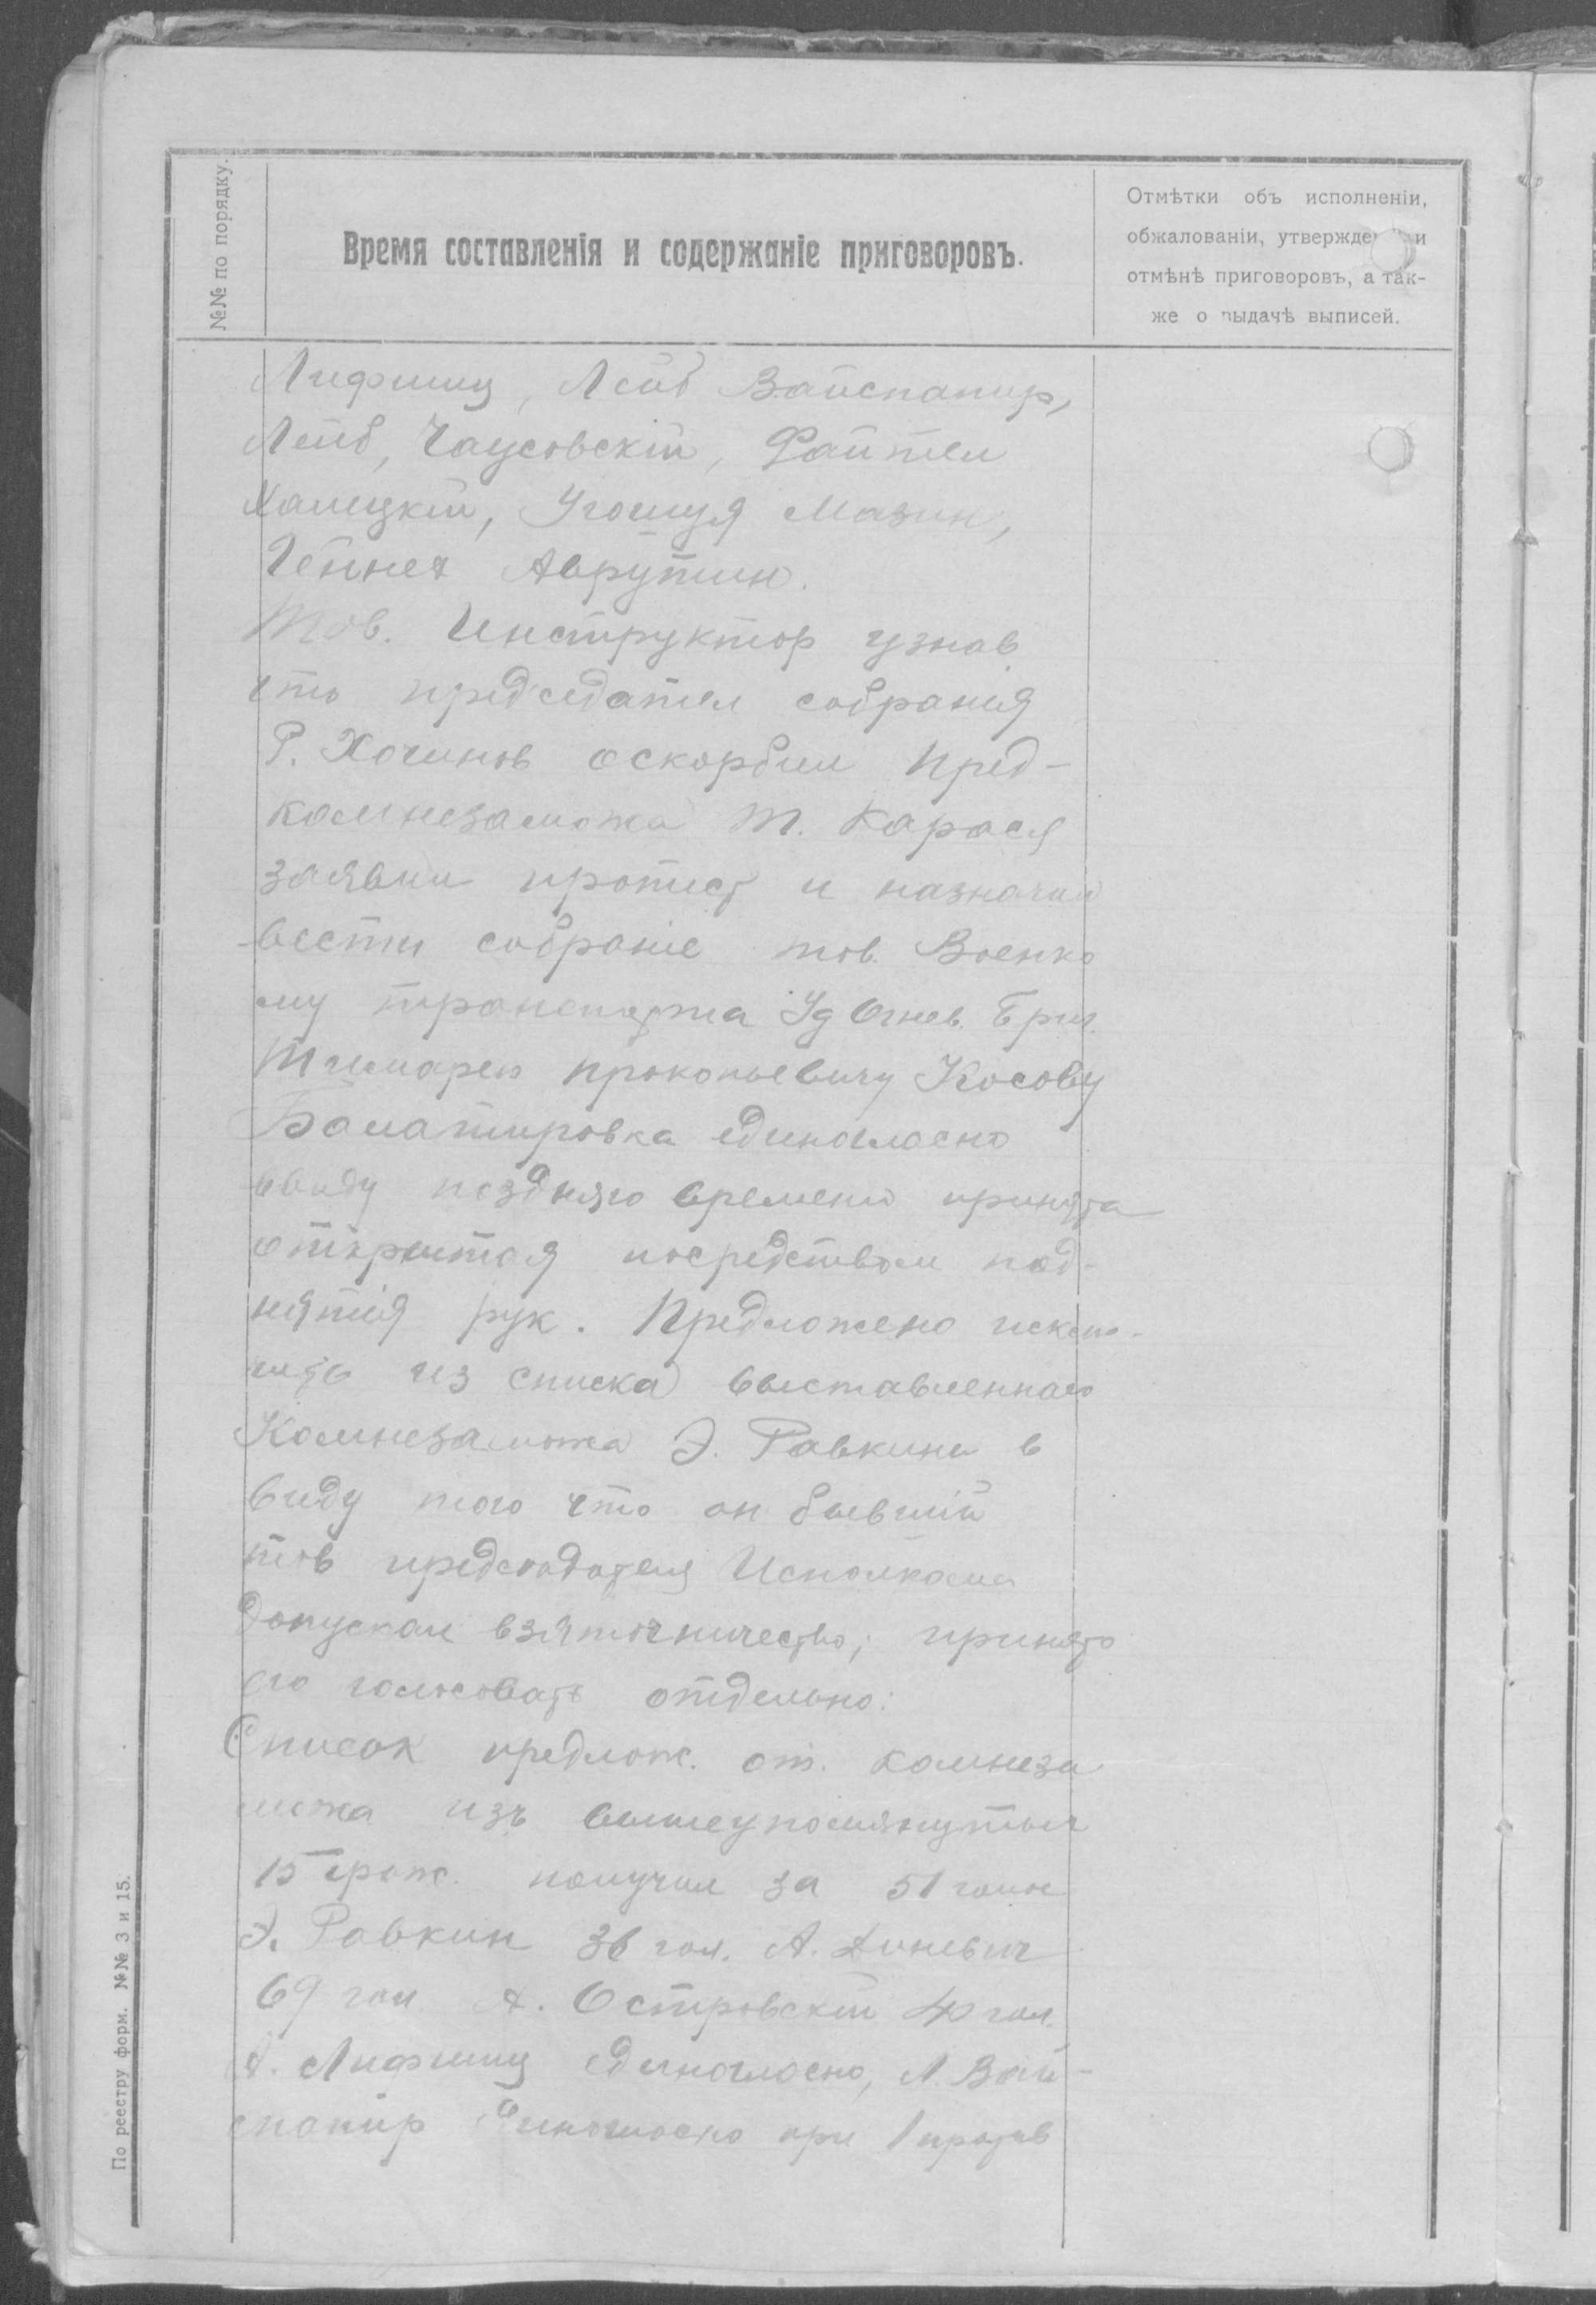 №№ по порядку.
Время составленія и содержаніе приговоровъ.
Отмѣтки объ исполненіи,
обжалованіи, утвержде и
отмѣнѣ приговоровъ, а так-
же о выдачѣ выписей.
Лифшиц, Лейб Вайспапир,
Лейб, Чаусовскій, Файтел
Халецкій, Мазин,
Аврутин.
Тов. Инструктор узнав
что председател собранія
Р. Хочинов оскорбил Пред-
комнезаможа т. Карася
заявил протест и назначил
вести собраніе тов. Военко
му транспорта Огнев. Бриг.
Прокопьевичу Косову
Балатировка единогласно
ввиду поздняго времени принята
открытая посредством под-
нятія рук. Предложено исклю-
чить из списка выставленнаго
Комнезаможа Э. Равкина в
виду того что он бывшій
тов председателя Исполкома
допускал взяточничество; принято
его голосовать отдельно:
Список предлож. от. комнеза
можа изъ вышеупомянутых
15 граж. получил за 51 голос
Э. Равкин 36 гол. А.
69 гол А. Островскій 40 гол.
А. Лифшиц единогласно, Л. Вай-
спапир единогласно при 1 против
По реестру форм. №№ 3 и 15.